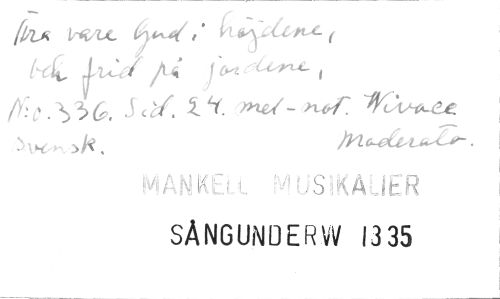 Ära vare Gud i höjdene,
och frid på jordene,
N:o. 336. Sid. 24. mel-not. Vivace
svensk. Moderato.
MANKELL MUSIKALIER
SÅNGUNDERW 1835